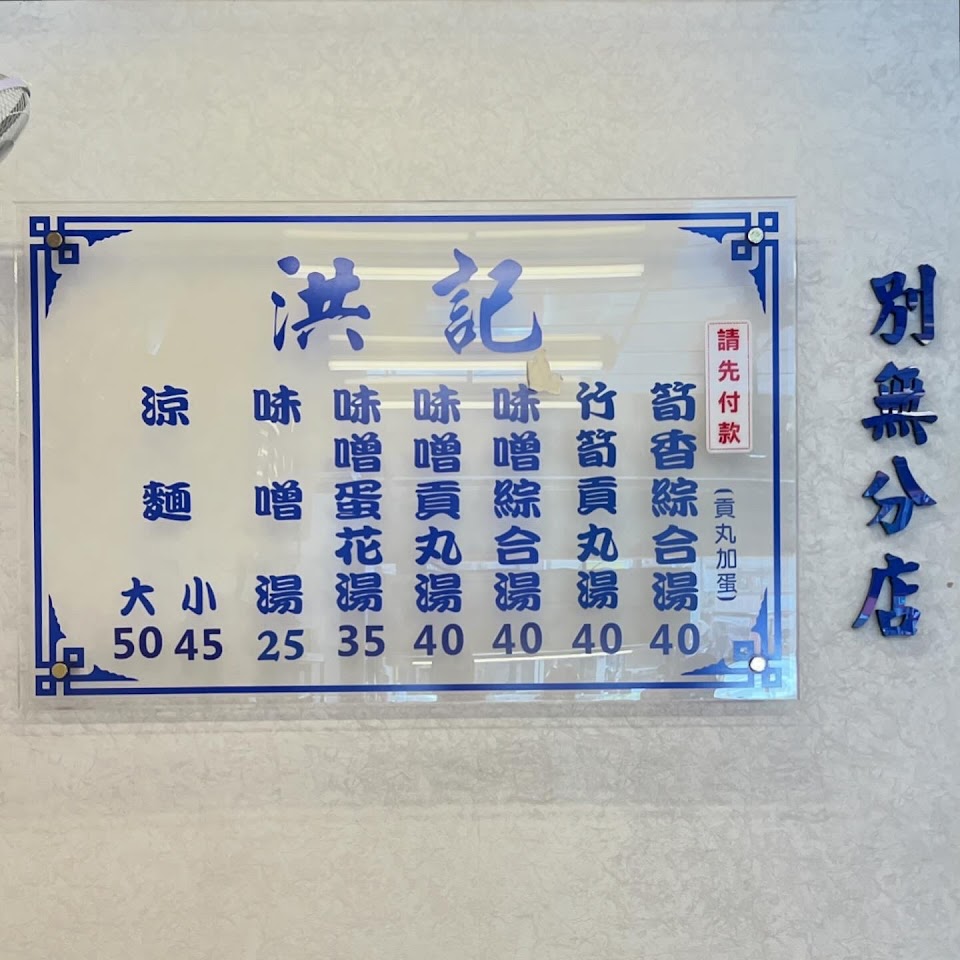 洪記
請先付款
筍香綜合湯 40
(貢丸加蛋)
竹筍貢丸湯 40
味噌綜合湯 40
味噌貢丸湯 40
味噌蛋花湯 35
味噌湯 25
涼麵 小 45 大 50
別無分店